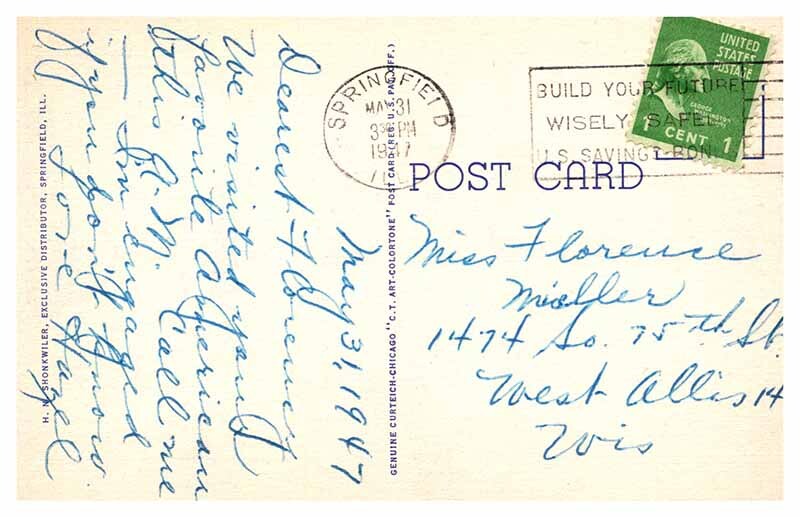 H. N. SHONKWILER, EXCLUSIVE DISTRIBUTOR, SPRINGFIELD, ILL.
May 31, 1947
Dearest Florence
We visited your
favorite American
this A.M. Call me
— I'm engaged
if you don't know.
Love Hazel
GENUINE CURTEICH-CHICAGO "C.T. ART-COLORTONE" POST CARD (REG. U.S. PAT. OFF.)
SPRINGFIELD
MAY 31
PM
1947
BUILD YOUR FUTURE
WISELY SAFELY
U.S. SAVINGS BONDS
UNITED
STATES
POSTAGE
GEORGE
WASHINGTON
1 CENT 1
POST CARD
Miss Florence
1474 So. 75th St.
West Allis 14
Wis